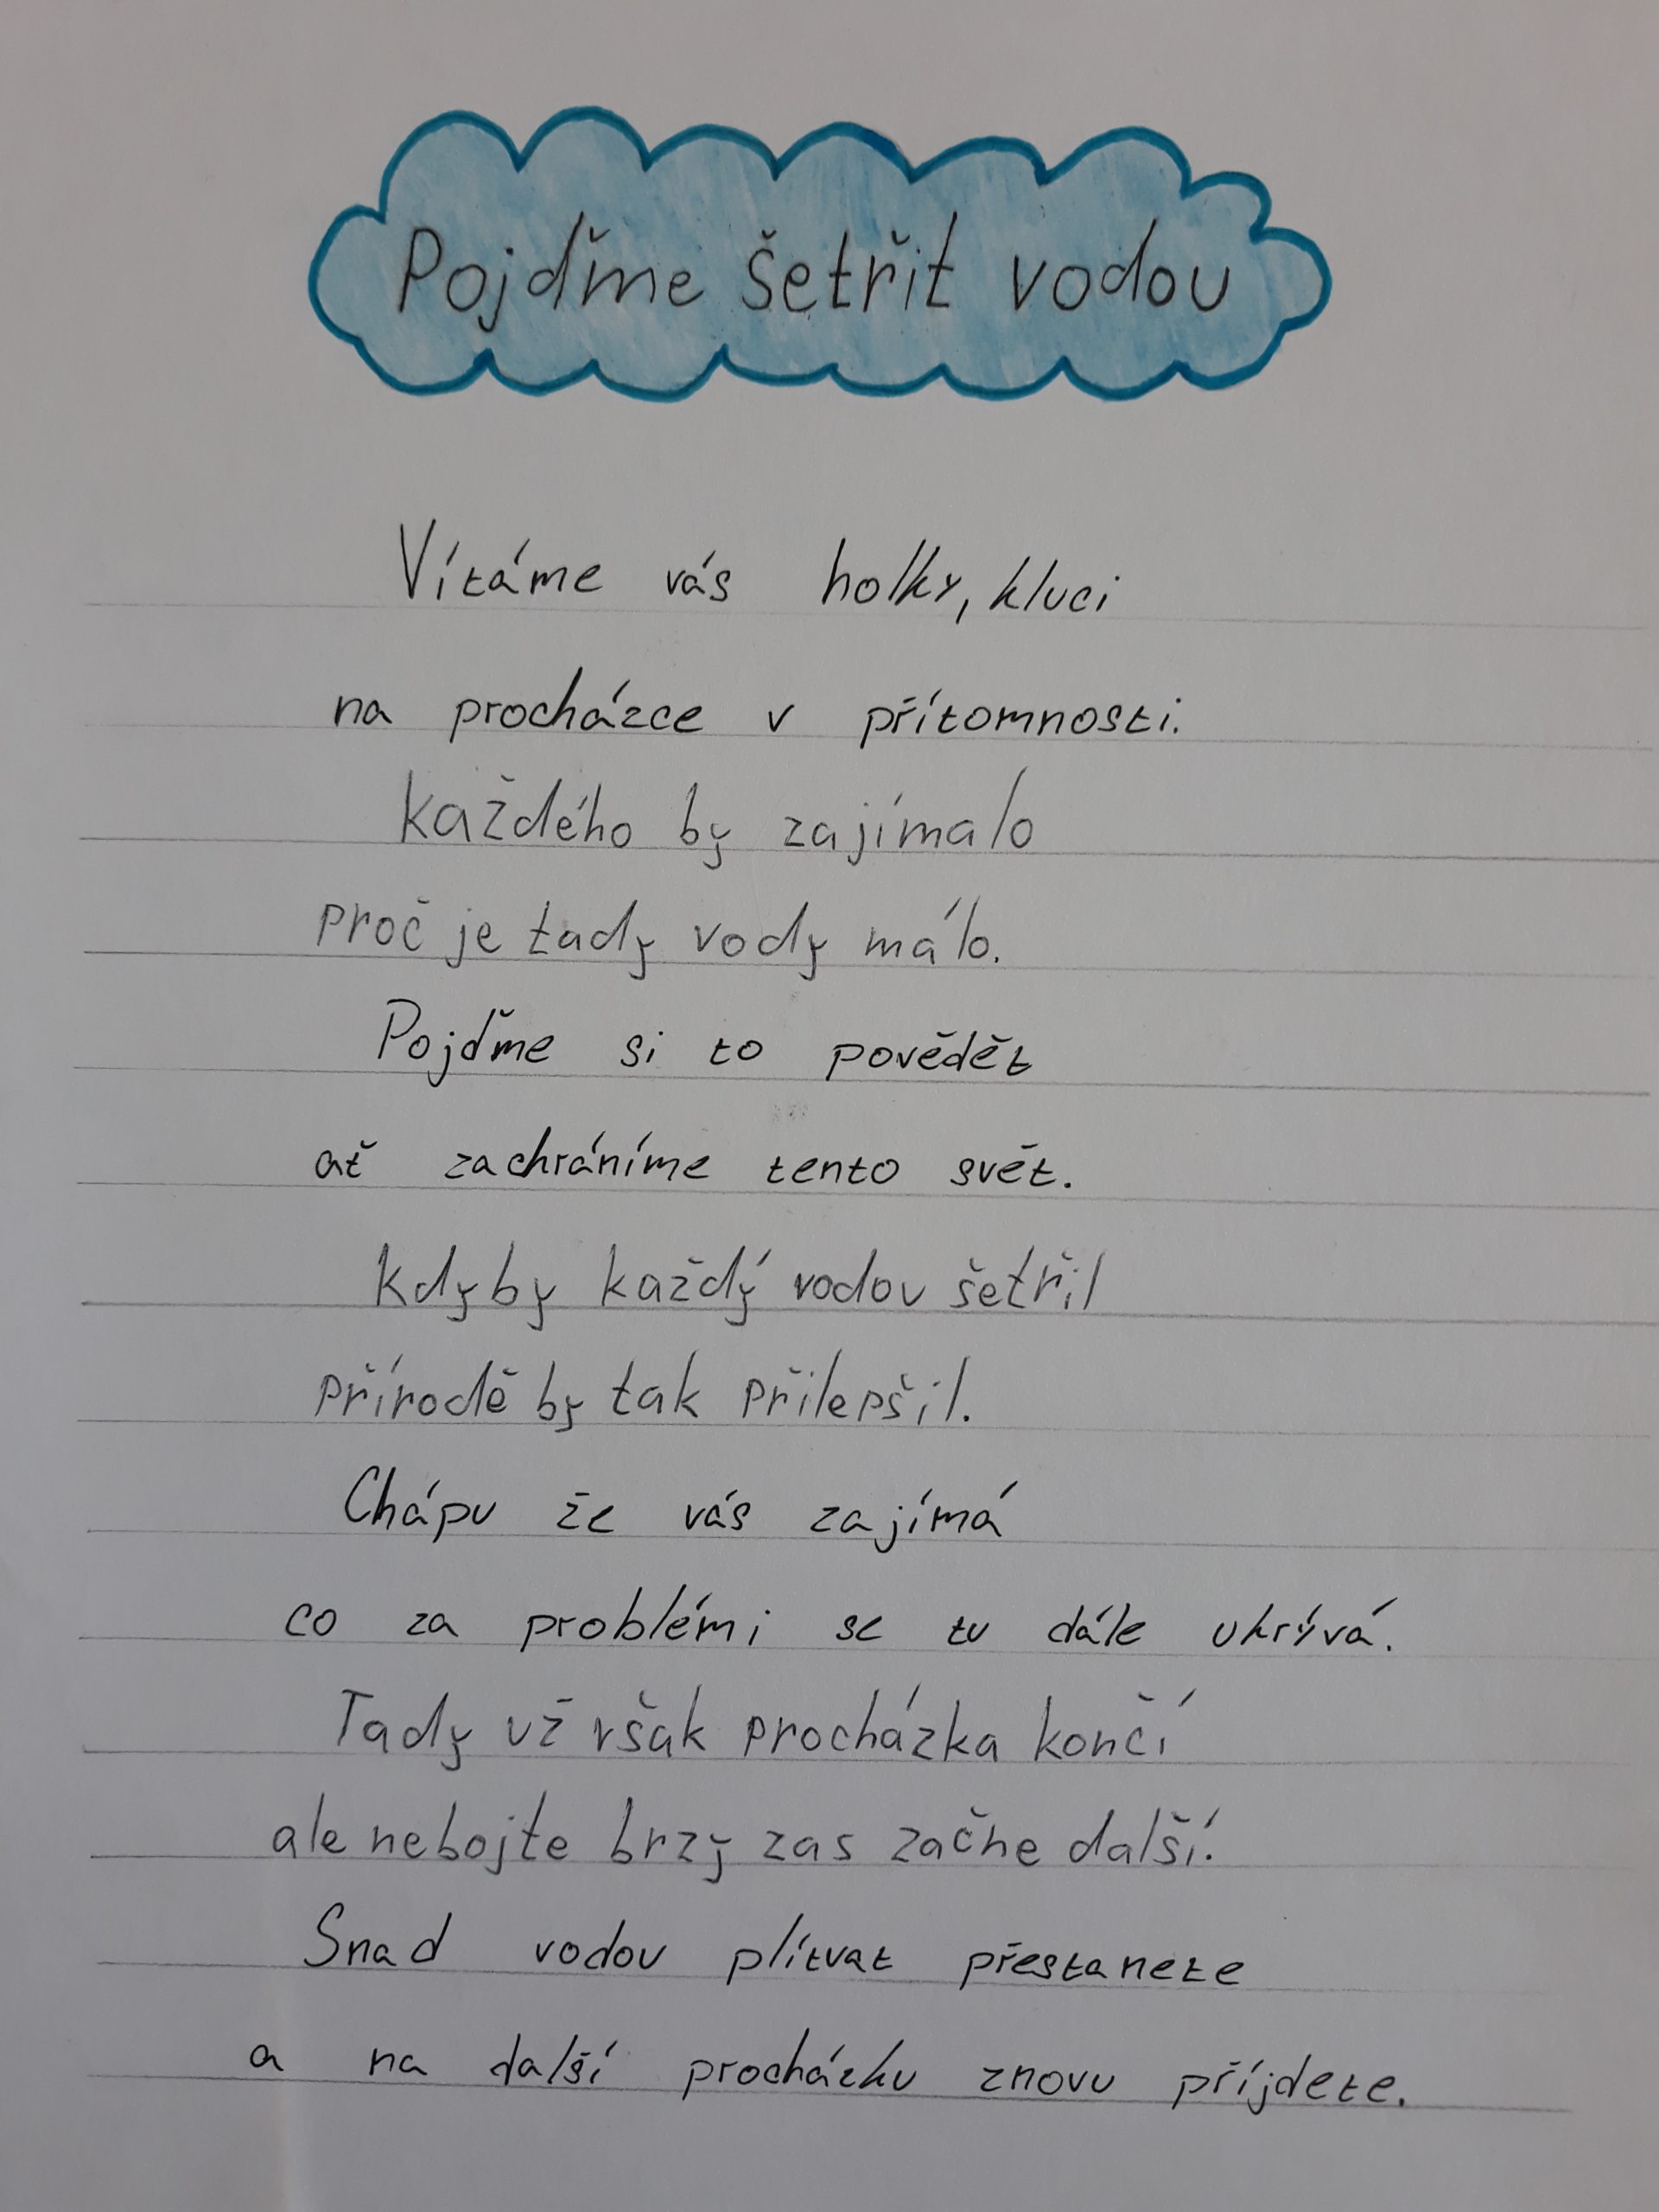 Pojďme šetřit vodou
Vítáme vás holky, kluci
na procházce v přítomnosti.
Každého by zajímalo
proč je tady vody málo.
Pojďme si to povědět
ať zachráníme tento svět.
Kdyby každý vodou šetřil
přírodě by tak přilepšil.
Chápu že vás zajímá
co za problémi se tu dále ukrývá.
Tady už však procházka končí
ale nebojte brzy zas začne další.
Snad vodou plítvat přestanete
a na další procházku znovu příjdete.